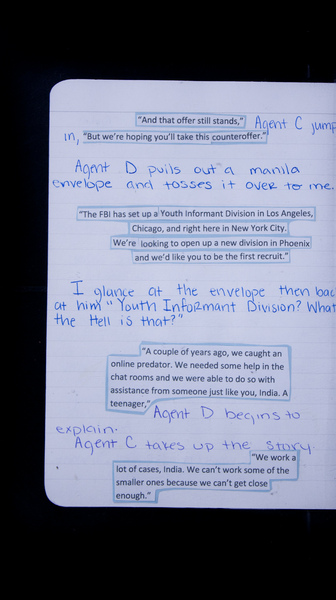 "And that offer still stands," Agent C jump
in, "But we're hoping you'll take this counteroffer."
Agent D pulls out a manila
envelope and tosses it over to me.
"The FBI has set up a Youth Informant Division in Los Angeles,
Chicago, and right here in New York City.
We're looking to open up a new division in Phoenix
and we'd like you to be the first recruit."
I glance at the envelope then bac
at him "Youth Informant Division? What
the Hell is that?"
"A couple of years ago, we caught an
online predator. We needed some help in the
chat rooms and we were able to do so with
assistance from someone just like you, India. A
teenager," Agent D begins to
explain.
Agent C takes up the story.
"We work a
lot of cases, India. We can't work some of the
smaller ones because we can't get close
enough."